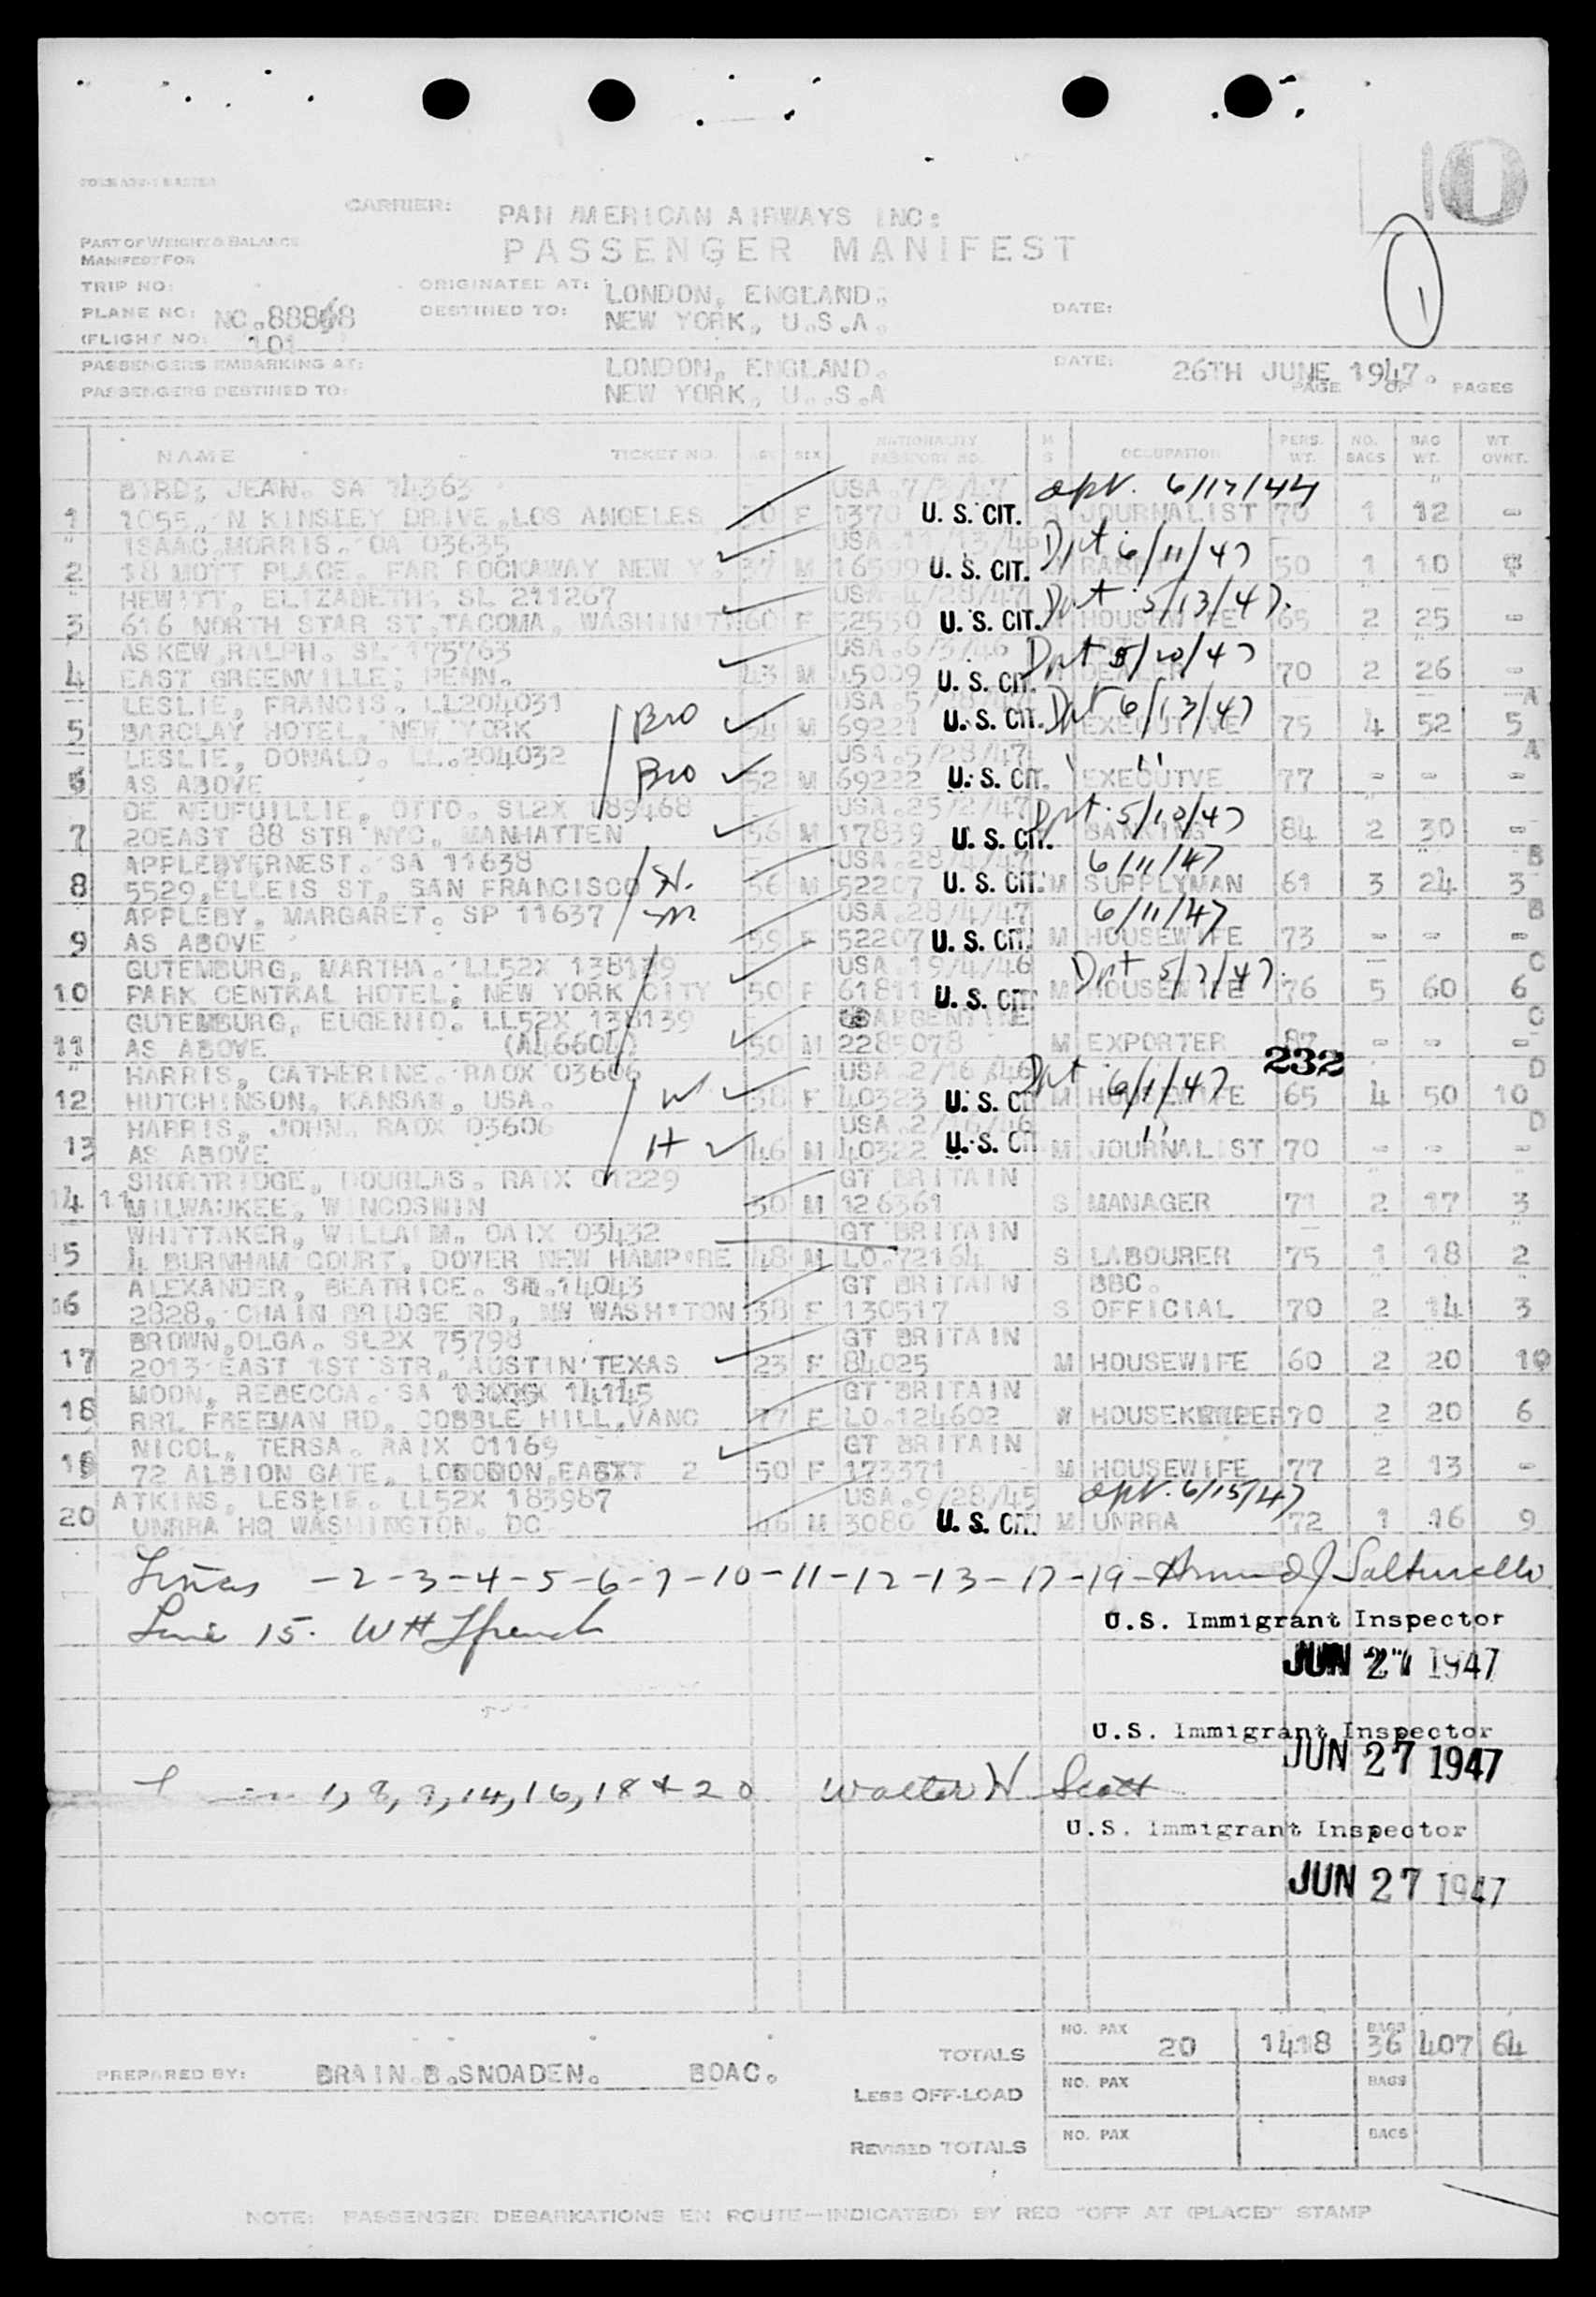 10
CARRIER: PAN AMERICAN AIRWAYS INC:
PASSENGER MANIFEST
PART OF WEIGHT & BALANCE
MANIFEST FOR
1
TRIP NO: ORIGINATED AT: LONDON, ENGLAND.
PLANE NO: NC.88868 DESTINED TO: NEW YORK, U.S.A. DATE:
(FLIGHT NO: 101
PASSENGERS EMBARKING AT: LONDON, ENGLAND. DATE: 26TH JUNE 1947.
PASSENGERS DESTINED TO: NEW YORK, U..S.A PAGE OF PAGES
NAME TICKET NO. AGE SEX NATIONALITY PASSPORT NO. M S OCCUPATION PERS. WT. NO. BAGS BAG WT. WT. OVNT.
BIRD; JEAN. SA 14363 USA .7/3/47
1 1055, N KINSLEY DRIVE,LOS ANGELES F 1370 U. S. CIT. S JOURNALIST 70 1 12 -
ISAAC,MORRIS. OA 03635 USA .11/13/46 Dpt 6/11/47
2 18 MOTT PLACE, FAR ROCKAWAY NEW Y. 37 M U. S. CIT. 50 1 10
HEWITT, ELIZABETH; SL 211267 USA .4/28/47 Dpt 5/13/47.
3 616 NORTH STAR ST,TACOMA, WASHIN 60 F 52550 U. S. CIT. HOUSEWIFE 65 2 25 -
ASKEW,RALPH. SL 175763 USA .6/3/46 Dpt 5/20/47
4 EAST GREENVILLE; PENN. 43 M 45009 U. S. CIT. DEALER 70 2 26 -
LESLIE, FRANCIS. LL204031 USA .5/ Dpt 6/13/47 A
5 BARCLAY HOTEL, NEW YORK Bro 54 M 69221 U. S. CIT. EXECUTIVE 75 4 52 5
LESLIE, DONALD. LL.204032 USA .5/28/47 " A
6 AS ABOVE Bro 52 M 69222 U. S. CIT. EXECUTVE 77 - - -
DE NEUFUILLIE, OTTO. SL2X 189468 USA .25/2/47 Dpt. 5/10/47
7 20EAST 88 STR NYC, MANHATTEN 56 M 17839 U. S. CIT. BANKING 84 2 30 -
APPLEBYERNEST. SA 11638 USA .28/4/47 6/11/47 B
8 5529,ELLEIS ST, SAN FRANCISCO H. 56 M 52207 U. S. CIT. M SUPPLYMAN 61 3 24 3
APPLEBY, MARGARET. SP 11637 USA .28/4/47 6/11/47 B
9 AS ABOVE 59 F 52207 U. S. CIT. M HOUSEWIFE 73 - - -
GUTEMBURG, MARTHA. LL52X 138139 USA .19/4/46 Dpt 5/7/47. C
10 PARK CENTRAL HOTEL; NEW YORK CITY 50 F 61811 U. S. CIT M HOUSEWIFE 76 5 60 6
GUTEMBURG, EUGENIO. LL52X 138139 ARGENTINE C
11 AS ABOVE (A46604) 50 M 2285078 M EXPORTER 87 - - -
232
HARRIS, CATHERINE. RAOX 03606 USA .2/16/46 Dpt 6/1/47 D
12 HUTCHINSON, KANSAS, USA. W 38 F 40323 U. S. CIT M HOUSEWIFE 65 4 50 10
HARRIS, JOHN. RAOX 03606 USA .2/16/46 " D
13 AS ABOVE H 46 M 40322 U. S. CIT M JOURNALIST 70 - - -
SHORTRIDGE, DOUGLAS. RAIX 01229 GT BRITAIN
14 11 MILWAUKEE, WINCOSWIN 50 M 126361 S MANAGER 71 2 17 3
WHITTAKER, WILLAIM. OAIX 03432 GT BRITAIN
15 4 BURNHAM COURT, DOVER NEW HAMP RE 48 M LO.72164 S LABOURER 75 1 18 2
ALEXANDER, BEATRICE. SA.14043 GT BRITAIN BBC.
16 2828, CHAIN BRIDGE RD, NW WASHITON 38 F 130517 S OFFICIAL 70 2 14 3
BROWN,OLGA. SL2X 75798 GT BRITAIN
17 2013 EAST 1ST STR, AUSTIN TEXAS 23 F 84025 M HOUSEWIFE 60 2 20 10
MOON, REBECCA. SA 14145 GT BRITAIN
18 RRL FREEMAN RD, COBBLE HILL,VANC 77 F LO.124602 W HOUSEKEEPER 70 2 20 6
NICOL, TERSA. RAIX 01169 GT BRITAIN
19 72 ALBION GATE, LONDON, EAST 2 50 F 173371 M HOUSEWIFE 77 2 13 -
ATKINS, LESLIE. LL52X 183987 USA .9/28/45 6/15/47
20 UNRRA HQ WASHINGTON. DC 46 M 3080 U. S. CIT. M UNRRA 72 1 16 9
Lines -2-3-4-5-6-7-10-11-12-13-17-19-
Line 15. W H
U.S. Immigrant Inspector
JUN 27 1947
U.S. Immigrant Inspector
JUN 27 1947
1, 8, 9, 14, 16, 18 + 20 Walter H Scott
U.S. Immigrant Inspector
JUN 27 1947
TOTALS NO. PAX 20 1418 BAGS 36 407 64
PREPARED BY: BRAIN.B.SNOADEN. BOAC.
LESS OFF-LOAD NO. PAX BAGS
REVISED TOTALS NO. PAX BAGS
NOTE: PASSENGER DEBARKATIONS EN ROUTE—INDICATE(D) BY RED "OFF AT (PLACE)" STAMP